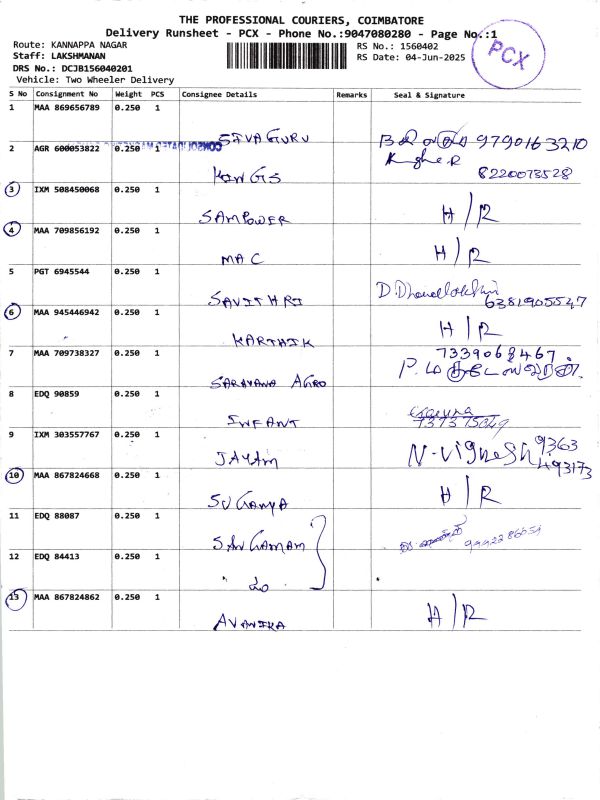 THE PROFESSIONAL COURIERS, COIMBATORE
Delivery Runsheet - PCX - Phone No.:9047080280 - Page No.:1
Route: KANNAPPA NAGAR
Staff: LAKSHMANAN
DRS No.: DCJB156040201
Vehicle: Two Wheeler Delivery
RS No.: 1560402
RS Date: 04-Jun-2025
PCX
S No Consignment No Weight PCS Consignee Details Remarks Seal & Signature
1 MAA 869656789 0.250 1 SIVAGURU 9790163210
2 AGR 600053822 0.250 1 KINGS 8220073528
3 IXM 508450068 0.250 1 SAMPOWER H/R
4 MAA 709856192 0.250 1 MAC H/R
5 PGT 6945544 0.250 1 SAVITHRI 6381905547
6 MAA 945446942 0.250 1 KARTHIK H/R
7 MAA 709738327 0.250 1 SARAVANA AGRO
8 EDQ 90859 0.250 1 INFANT
9 IXM 303557767 0.250 1 JAYAM N-Vignesh 9363
493173
10 MAA 867824668 0.250 1 SUGANYA H/R
11 EDQ 88087 0.250 1 SANGAMAM
12 EDQ 84413 0.250 1
13 MAA 867824862 0.250 1 AVANIKA H/R